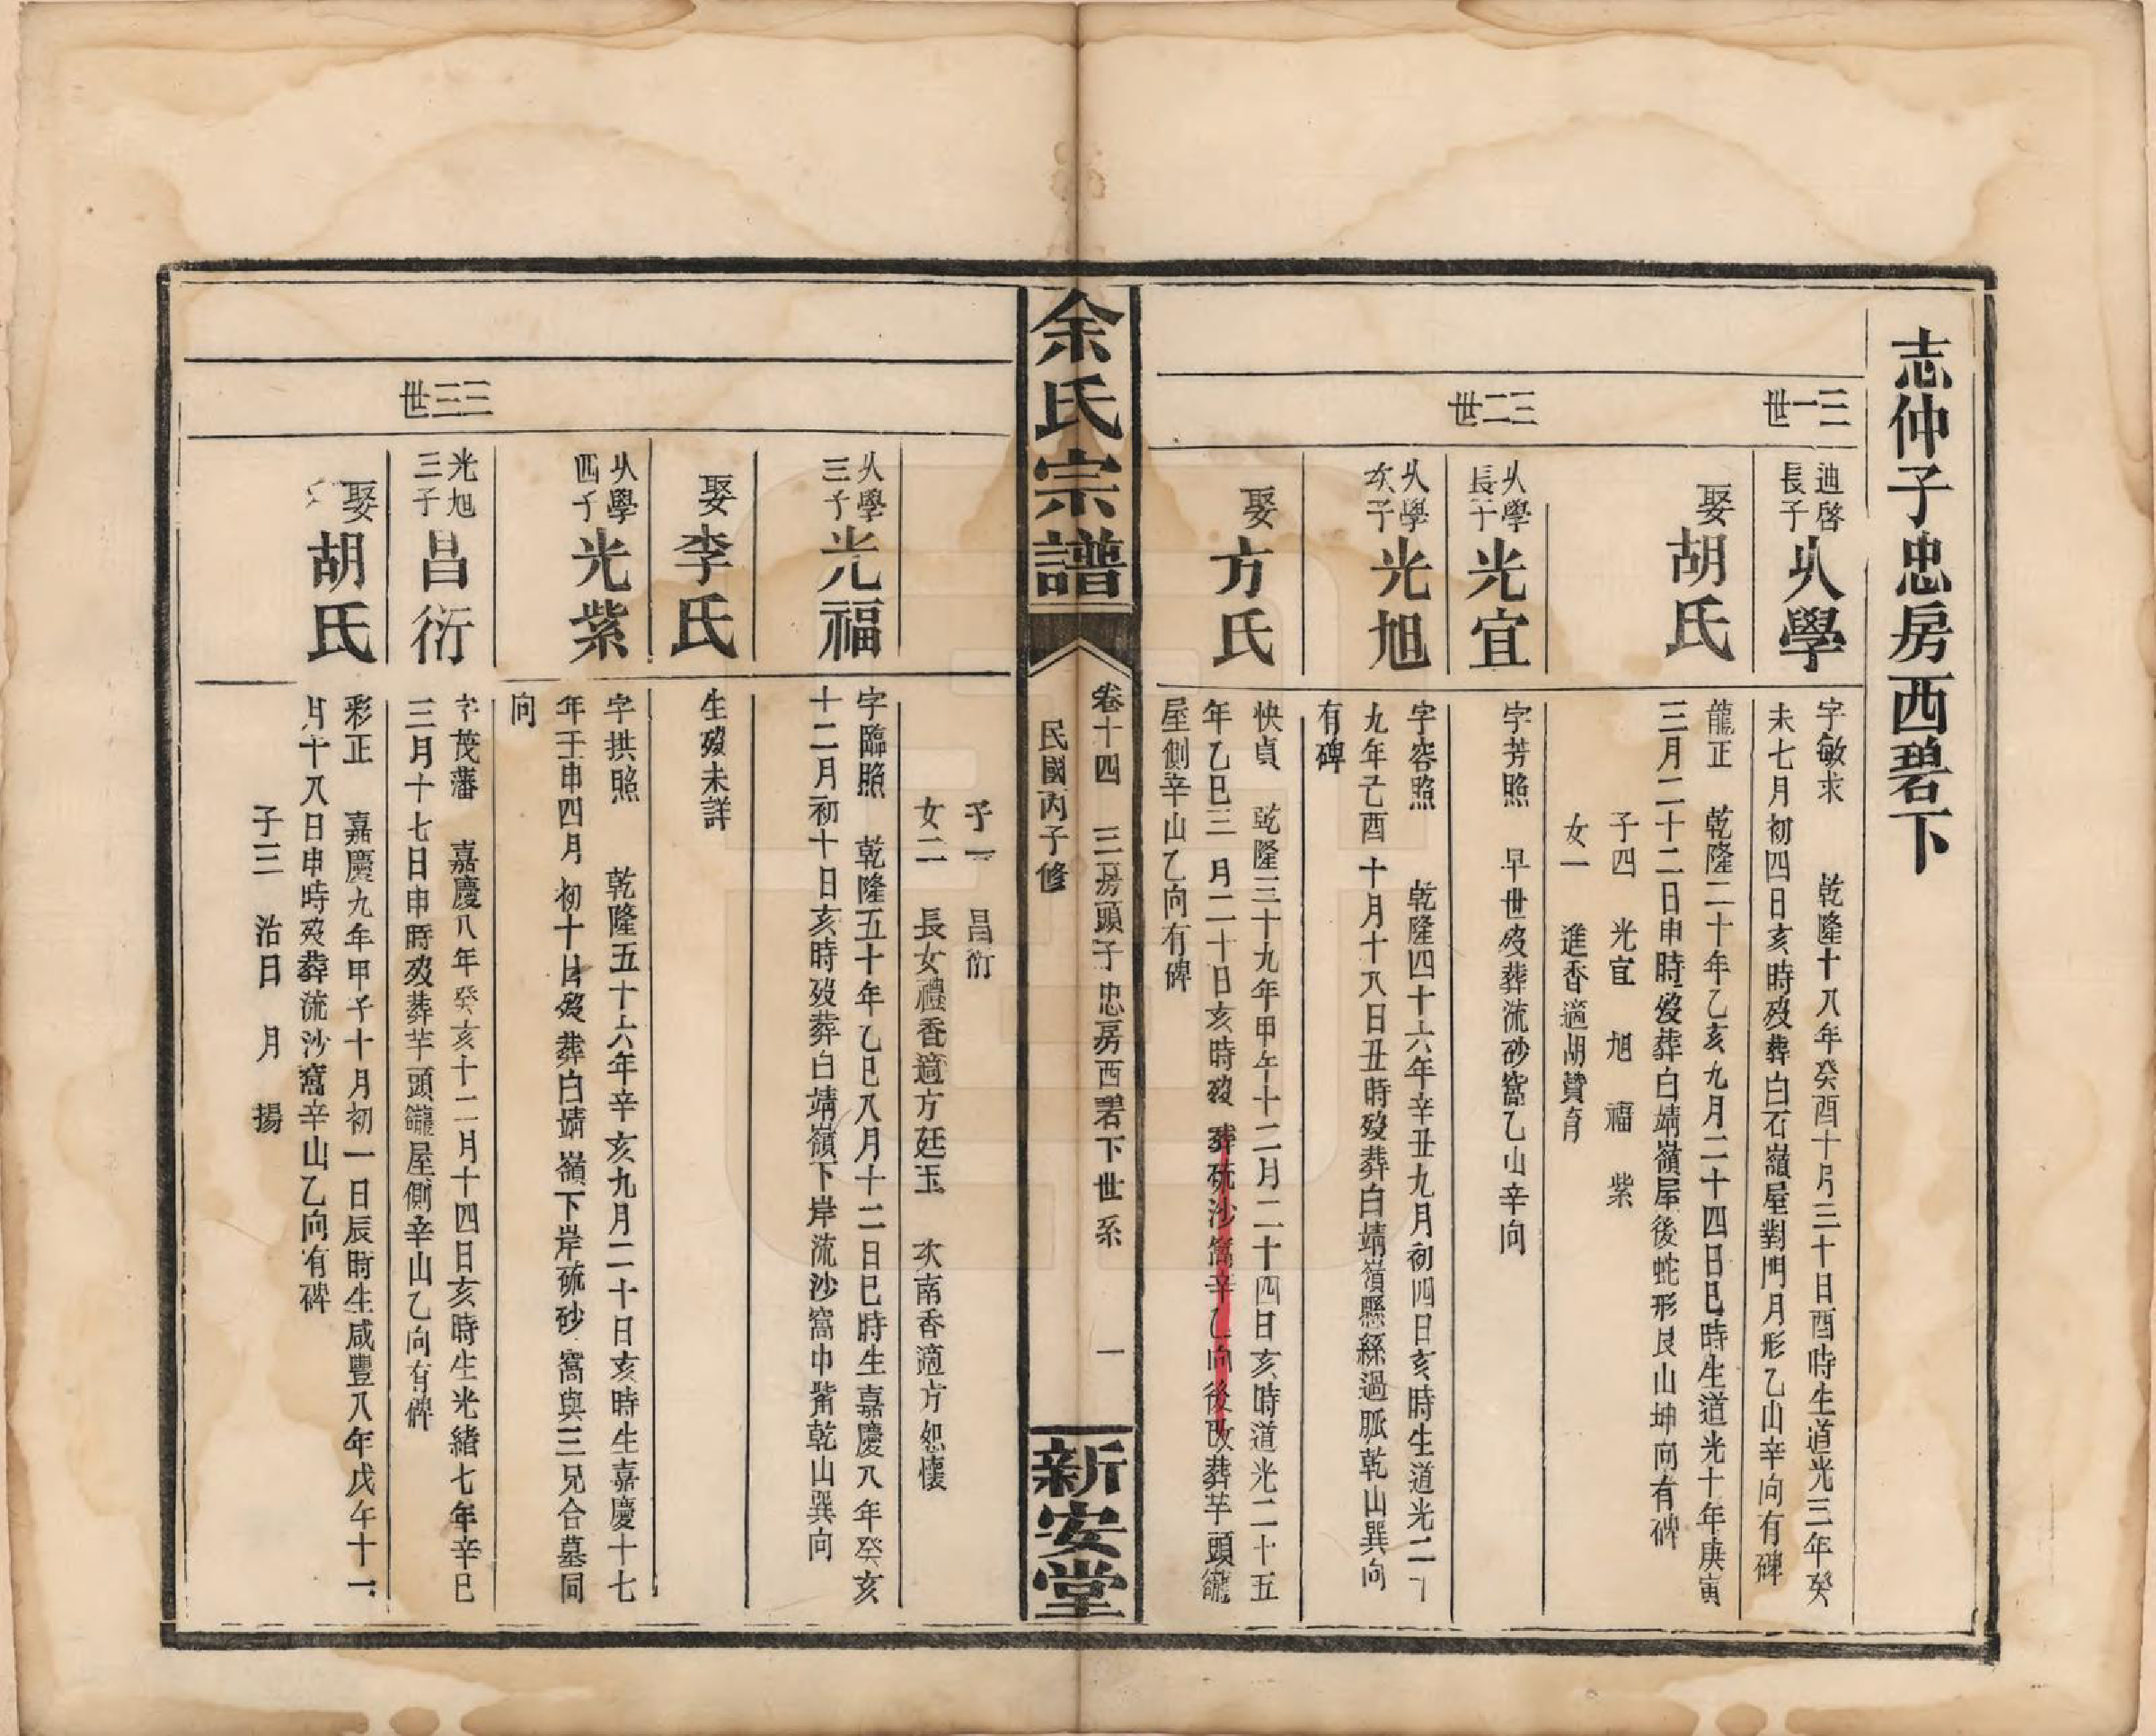 志仲子忠房西碧下
三一世
迪啓長子
乆學
字敏求 乾隆十八年癸酉十月三十日酉時生道光三年癸
未七月初四日亥時歿葬白石嶺屋對門月形乙山辛向有碑
娶胡氏
龍正 乾隆二十年乙亥九月二十四日巳時生道光十年庚寅
三月二十二日申時歿葬白靖嶺屋後蛇形艮山坤向有碑
子四 光宜 旭 福 紫
女一 進香適胡贊育
三二世
乆學長子
光宜
字芳照 早世歿葬流砂窩乙山辛向
乆學次子
光旭
字容照 乾隆四十六年辛丑九月初四日亥時生道光二十
九年己酉十月十八日丑時歿葬白靖嶺懸絲過脈乾山巽向
有碑
娶方氏
快貞 乾隆三十九年甲午十二月二十四日亥時道光二十五
年乙巳三月二十日亥時歿葬硫沙窩辛乙向後改葬芋頭龓
屋側辛山乙向有碑
余氏宗譜
卷十四 三房頭子忠房西碧下世系 一
民國丙子修
新安堂
子一 昌衍
女二 長女禮香適方廷玉 次南香適方恕懷
乆學三子
光福
字臨照 乾隆五十年乙巳八月十二日巳時生嘉慶八年癸亥
十二月初十日亥時歿葬白靖嶺下岸流沙窩巾觜乾山巽向
娶李氏
生歿未詳
乆學四子
光紫
字拱照 乾隆五十六年辛亥九月二十日亥時生嘉慶十七
年壬申四月初十日歿葬白靖嶺下岸硫砂窩與三兄合墓同
向
三三世
光旭三子
昌衍
字茂藩 嘉慶八年癸亥十二月十四日亥時生光緒七年辛巳
三月十七日申時歿葬芋頭龓屋側辛山乙向有碑
娶胡氏
彩正 嘉慶九年甲子十月初一日辰時生咸豐八年戊午十一
月十八日申時歿葬流沙窩辛山乙向有碑
子三 治日 月 揚